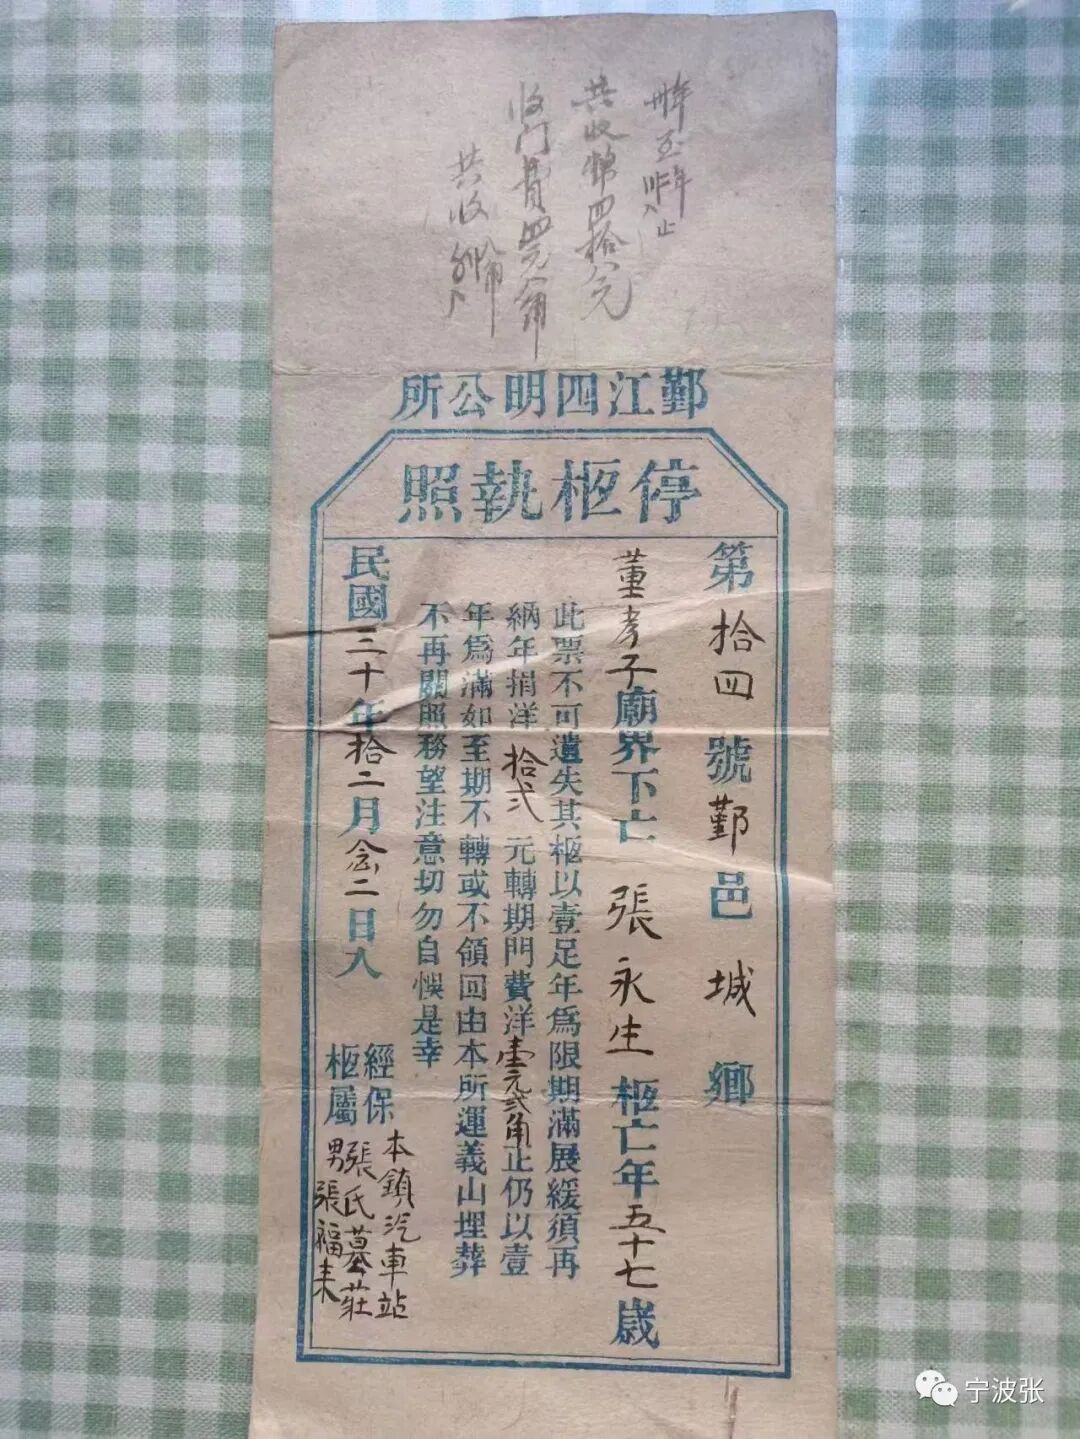 共收
共收幣四拾八元
收门費四元八角
鄞江四明公所
停柩執照
第拾四號鄞邑城鄉
董孝子廟界下亡張永生柩亡年五十七歲
此票不可遺失其柩以壹足年為限期滿展緩須再
納年捐洋拾弍元轉期門費洋壹元弍角正仍以壹
年為滿如至期不轉或不領回由本所運義山埋葬
不再關照務望注意切勿自悞是幸
民國三十年拾二月念二日入
經保 本鎮汽車站
張氏墓莊
柩屬 男張福來
宁波张